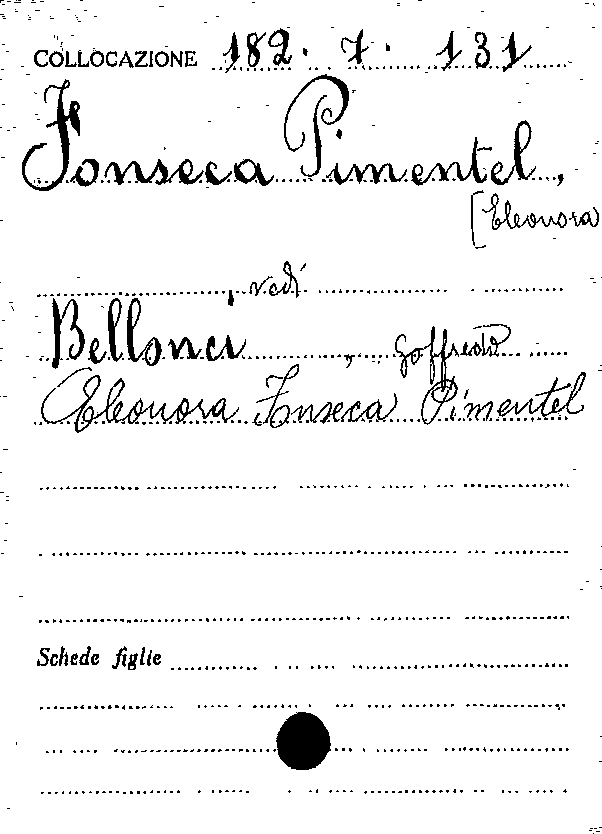 COLLOCAZIONE 182.7.131
Fonseca Pimentel,
[Eleonora
, vedi
Bellonci, Goffredo
Eleonora Fonseca Pimentel
Schede figlie